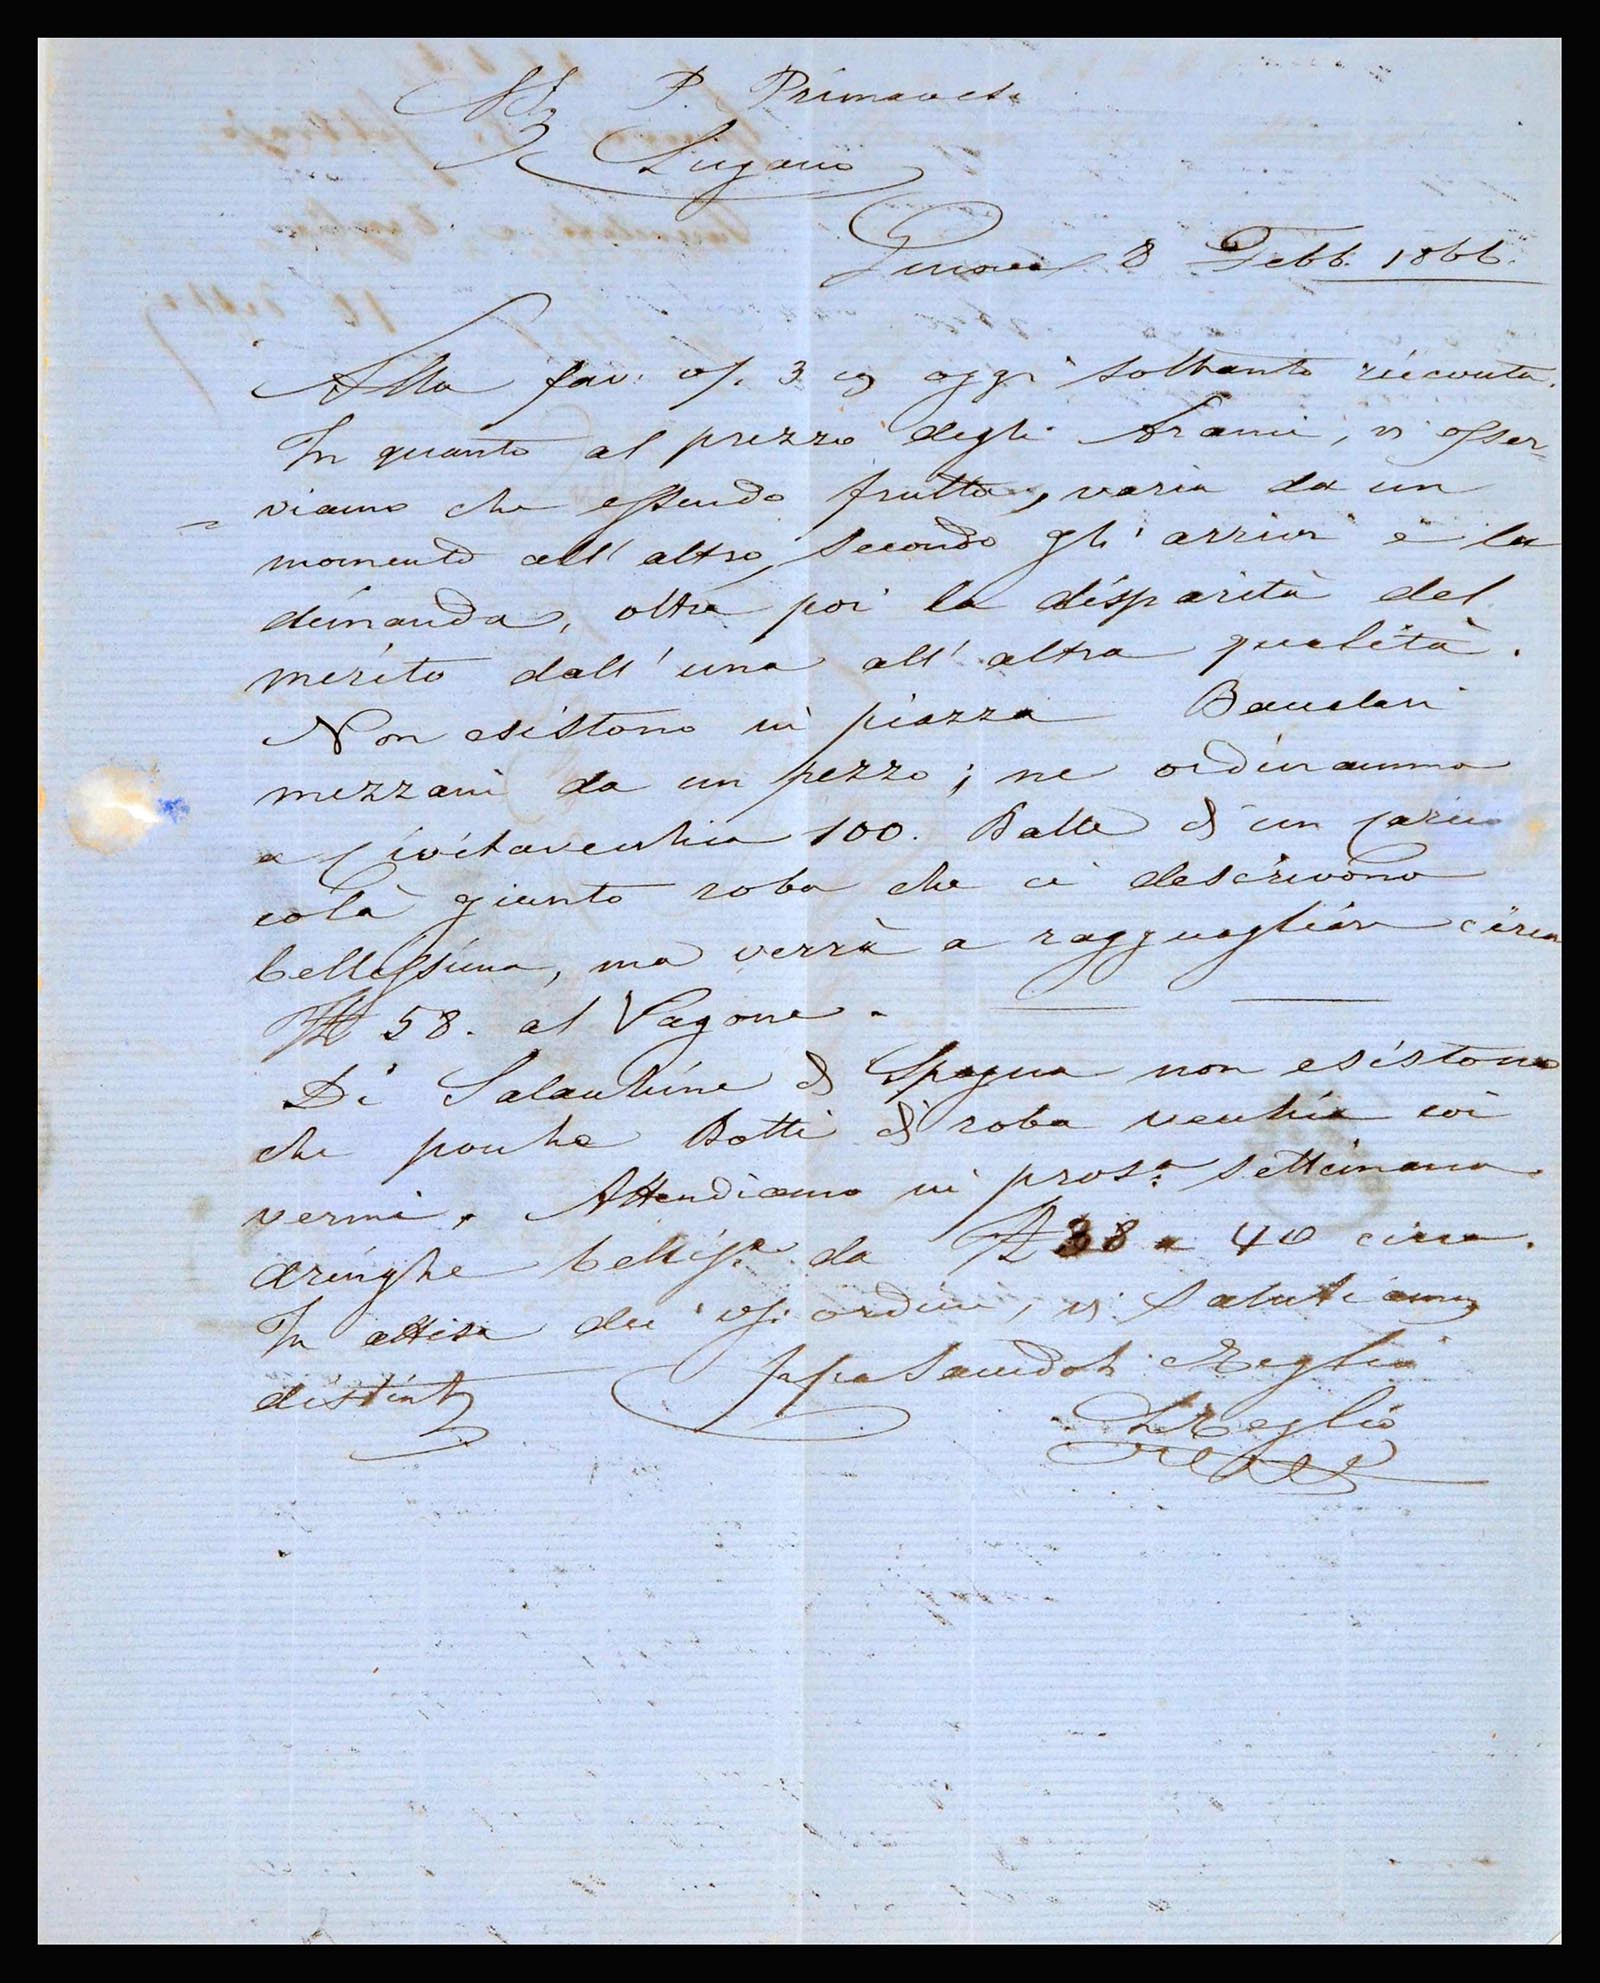 P. Primavesi
Lugano
Genova 8 Febb. 1866.
Alla fav. vs. 3 cs oggi soltanto ricevuta.
In quanto al prezzo degli Aranci, vi osser=
=viamo che essendo frutta, varia da un
momento all' altro, secondo gli arrivi e la
dimanda, oltre poi la disparità del
merito dall' una all' altra qualità.
Non esistono in piazza
mezzani da un pezzo; ne ordinammo
a Civitavecchia 100. Balle di un carico
colà giunto roba che ci descrivono
bellissima, ma verrà a ragguagliare circa
58. al Vagone.
Di Salacchine di Spagna non esistono
che poche Botti di roba vecchia coi
vermi. Attendiamo in pros.a settimana
aringhe belliss.e da 38 a 40 circa.
In attesa dei vs. ordini, vi salutiamo
distint
Sacerdoti Meglio
Meglio